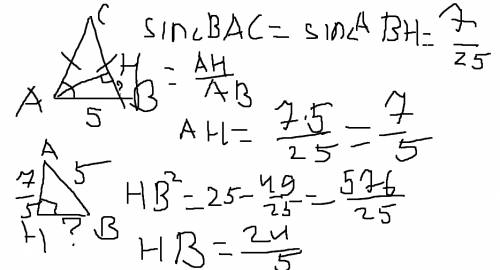 C
sin∠BAC = sin∠ABH = 7/25
A H B
5
= AH/AB
AH = 7·5/25 = 7/5
A
7/5 5
H ? B
HB² = 25 - 49/25 = 576/25
HB = 24/5